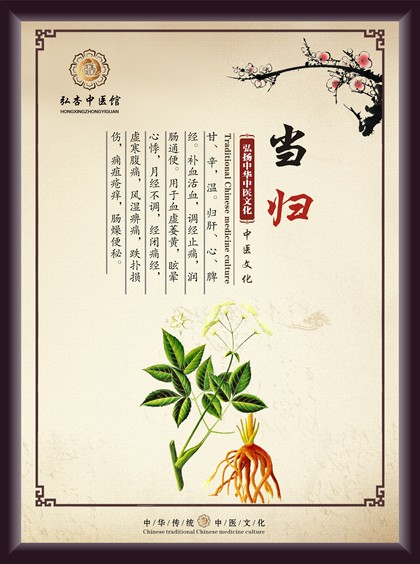 弘杏中医馆
HONGXINGZHONGYIGUAN
当归
弘扬中华中医文化
中医文化
Traditional Chinese medicine culture
甘、辛，温。归肝、心、脾
经。补血活血，调经止痛，润
肠通便。用于血虚萎黄，眩晕
心悸，月经不调，经闭痛经，
虚寒腹痛，风湿痹痛，跌扑损
伤，痈疽疮疡，肠燥便秘。
中/华/传/统/中/医/文/化
Chinese traditional Chinese medicine culture